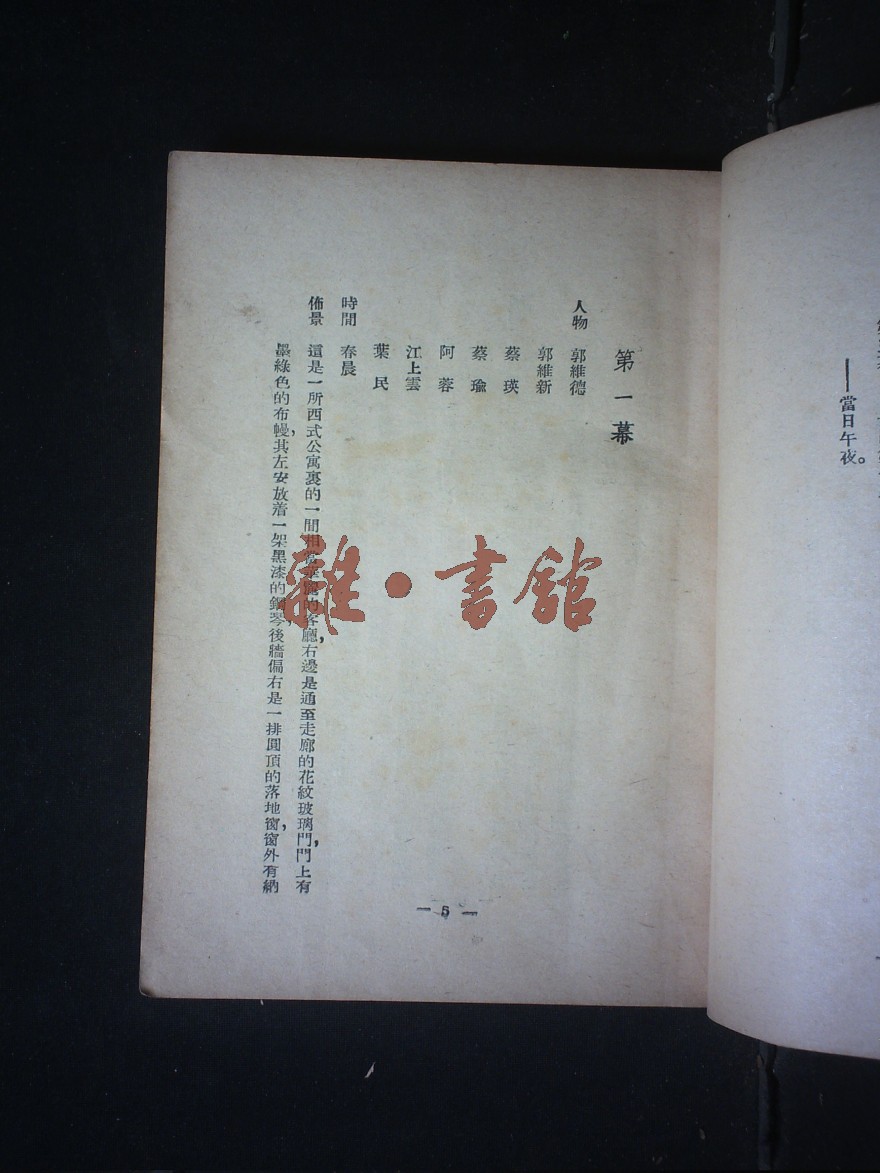 ——當日午夜。
第一幕
人物 郭維德
郭維新
蔡瑛
蔡瑜
阿蓉
江上雲
葉民
時間 春晨
佈景 這是一所西式公寓裏的一間相當華麗的客廳，右邊是通至走廊的花紋玻璃門，門上有
墨綠色的布幔，其左安放着一架黑漆的鋼琴，後牆偏右是一排圓頂的落地窗，窗外有納
— 5 —
雜·書館